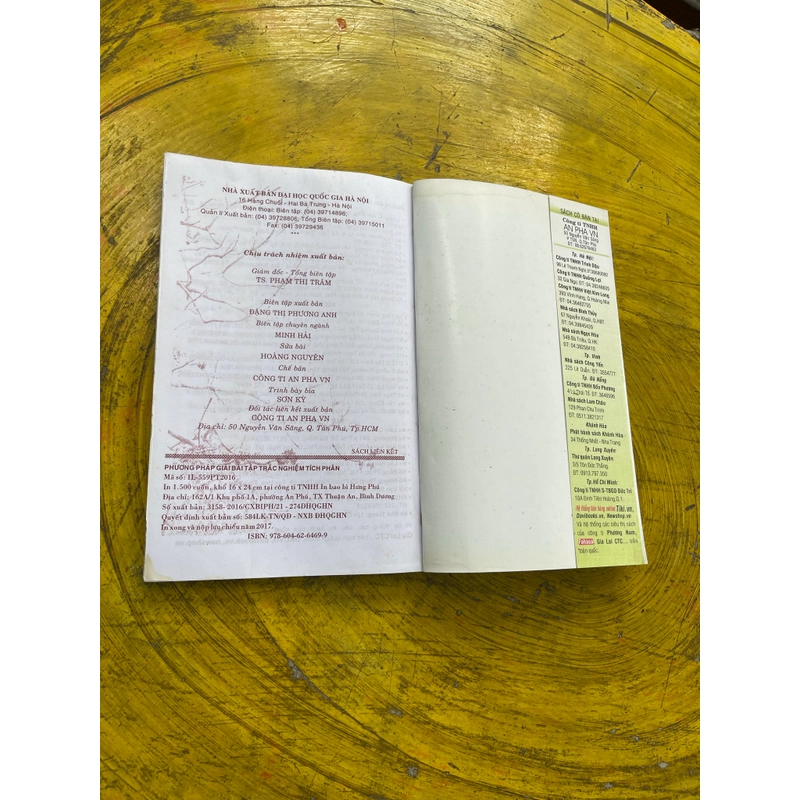 NHÀ XUẤT BẢN ĐẠI HỌC QUỐC GIA HÀ NỘI
16 Hàng Chuối - Hai Bà Trưng - Hà Nội
Điện thoại: Biên tập: (04) 39714896;
Quản lí Xuất bản: (04) 39728806; Tổng Biên tập: (04) 39715011
Fax: (04) 39729436
***
Chịu trách nhiệm xuất bản:
Giám đốc - Tổng biên tập
TS. PHẠM THỊ TRÂM
Biên tập xuất bản
ĐẶNG THỊ PHƯƠNG ANH
Biên tập chuyên ngành
MINH HẢI
Sửa bài
HOÀNG NGUYÊN
Chế bản
CÔNG TI AN PHA VN
Trình bày bìa
SƠN KỲ
Đối tác liên kết xuất bản
CÔNG TI AN PHA VN
Địa chỉ: 50 Nguyễn Văn Săng, Q. Tân Phú, Tp.HCM
SÁCH LIÊN KẾT
PHƯƠNG PHÁP GIẢI BÀI TẬP TRẮC NGHIỆM TÍCH PHÂN
Mã số: 1L-559PT2016
In 1.500 cuốn, khổ 16 x 24 cm tại công ti TNHH In bao bì Hưng Phú
Địa chỉ: 162A/1 Khu phố 1A, phường An Phú, TX Thuận An, Bình Dương
Số xuất bản: 3158- 2016/CXBIPH/21 - 274ĐHQGHN
Quyết định xuất bản số: 584LK-TN/QĐ - NXB ĐHQGHN
In xong và nộp lưu chiểu năm 2017.
ISBN: 978-604-62-6469-9
SÁCH CÓ BÁN TẠI
Công ti TNHH
AN PHA VN
50 Nguyễn Văn Săng
Q.Tân Phú
Tp. Hà Nội:
Công ti TNHH
Công ti TNHH Quảng Lợi
Công ti TNHH Việt Kim Long
Nhà sách Bình Thủy
67 Nguyễn Khoái, Q.HBT
ĐT: 04.39845439
Nhà sách Ngọc Hòa
54B Bà Triệu, Q.HK
ĐT: 04.38258410
Tp. Vinh
Nhà sách Công Yến
225 Lê Duẩn. ĐT: 3554777
Tp. Đà Nẵng
Nhà sách Lam Châu
129 Phan Chu Trinh
ĐT: 0511.3821317
Khánh Hòa
Phát hành sách Khánh Hòa
34 Thống Nhất - Nha Trang
Tp. Long Xuyên
Thư quán Long Xuyên
3/5 Tôn Đức Thắng
ĐT: 0913.797.000
Tp.Hồ Chí Minh:
Công ti TNHH S-TBGD Đức Trí
10A Đinh Tiên Hoàng, Q.1
Hệ thống bán hàng online Tiki.vn,
Davibooks.vn, Newshop.vn
Và hệ thống các siêu thị sách
của công ti Phương Nam,
Fahasa, Gia Lai CTC... trên
toàn quốc.